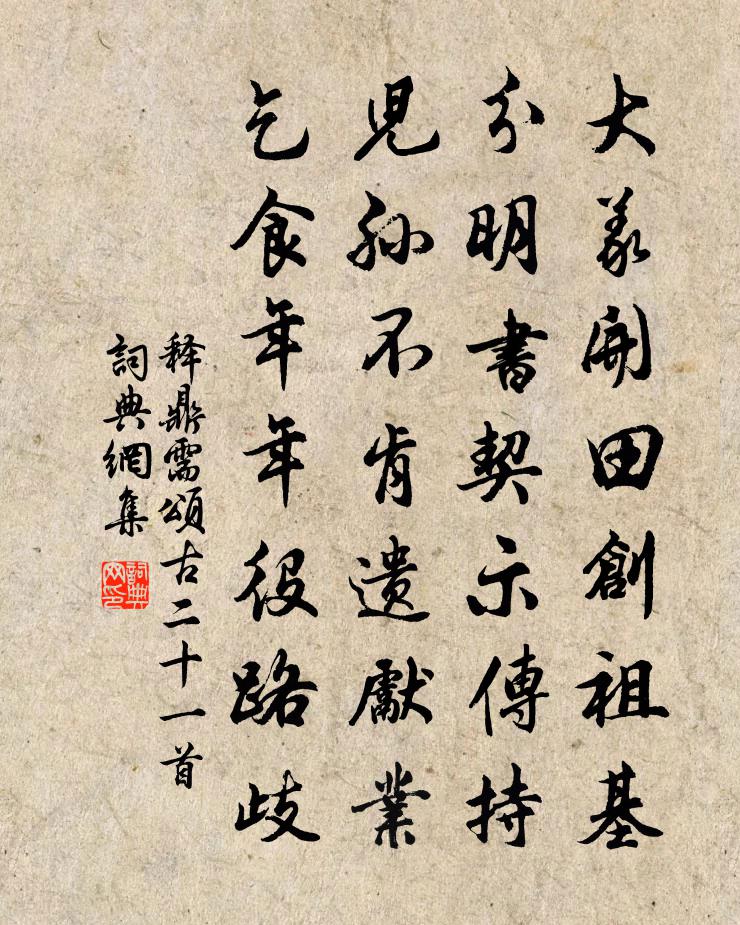 大義開田創祖基
分明書契示傳持
児孫不肯遺獻業
乞食年年役路歧
释鼎需頌古二十一首
詞典網集
詞典网印